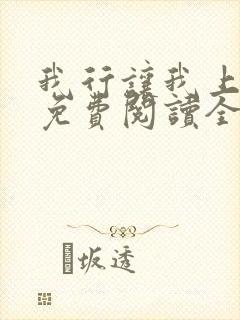 我行讓我上
免費閱讀全
坂透